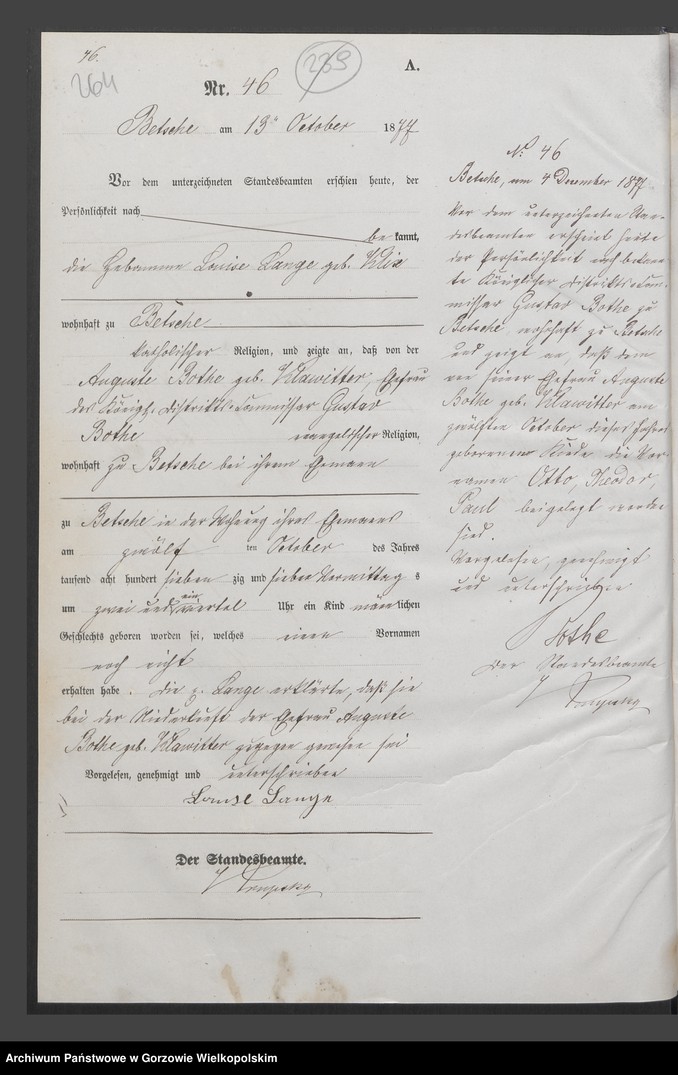 46.
264
239
A.
Nr. 46
Betsche am 13n October 1877
Vor dem unterzeichneten Standesbeamten erschien heute, der
Persönlichkeit nach
be kannt,
die Hebamme Louise Lange geb. Klix
wohnhaft zu Betsche
katholischer Religion, und zeigte an, daß von der
Auguste Bothe geb. Klawitter, Ehefrau
des Königl. Distrikts-Commissar Gustav
Bothe evangelischer Religion,
wohnhaft zu Betsche bei ihrem Ehemann
zu Betsche in der Wohnung ihres Ehemanns
am zwölf ten October des Jahres
tausend acht hundert sieben zig und sieben Vormittag s
um zwei und ein viertel Uhr ein Kind männ lichen
Geschlechts geboren worden sei, welches einen Vornamen
noch nicht
erhalten habe. Die p. Lange erklärte, daß sie
bei der Niederkunft der Ehefrau Auguste
Bothe geb. Klawitter zugegen gewesen sei
Vorgelesen, genehmigt und unterschrieben
Louise Lange
Der Standesbeamte.
No. 46
Betsche, am 4 December 1877.
Vor dem unterzeichneten Stan-
desbeamten erschien heute
der Persönlichkeit nach bekann-
te Königlicher Distrikts-Com-
missar Gustav Bothe zu
Betsche wohnhaft zu Betsche
und zeigt an, daß dem
von seiner Ehefrau Auguste
Bothe geb. Klawitter am
zwölften October dieses Jahres
geborenen Kinde die Vor-
namen Otto, Theodor,
Paul beigelegt worden
sind.
Vorgelesen, genehmigt
und unterschrieben
Bothe
Der Standesbeamte
Archiwum Państwowe w Gorzowie Wielkopolskim